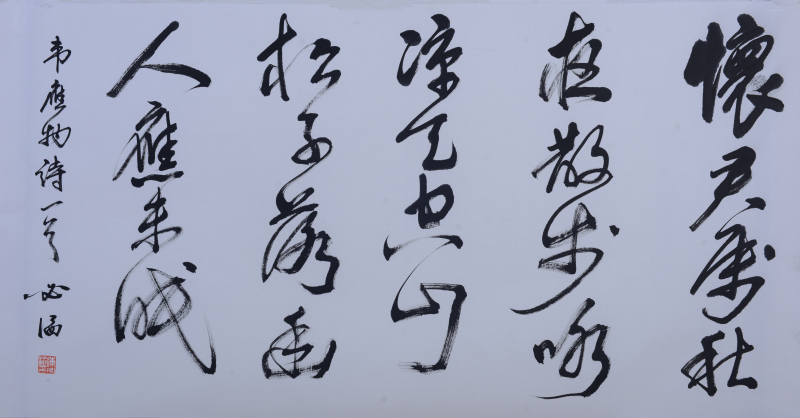 懷君屬秋
夜散步咏
凉天空山
松子落幽
人應未眠
韦應物诗一首 必